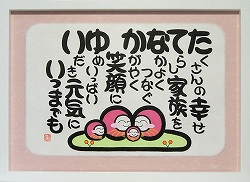 たくさんの幸せ
てらし家族を
なかよく
つなぐ
かがやく
笑顔に
ゆめいっぱい
いだき元気に
いつまでも